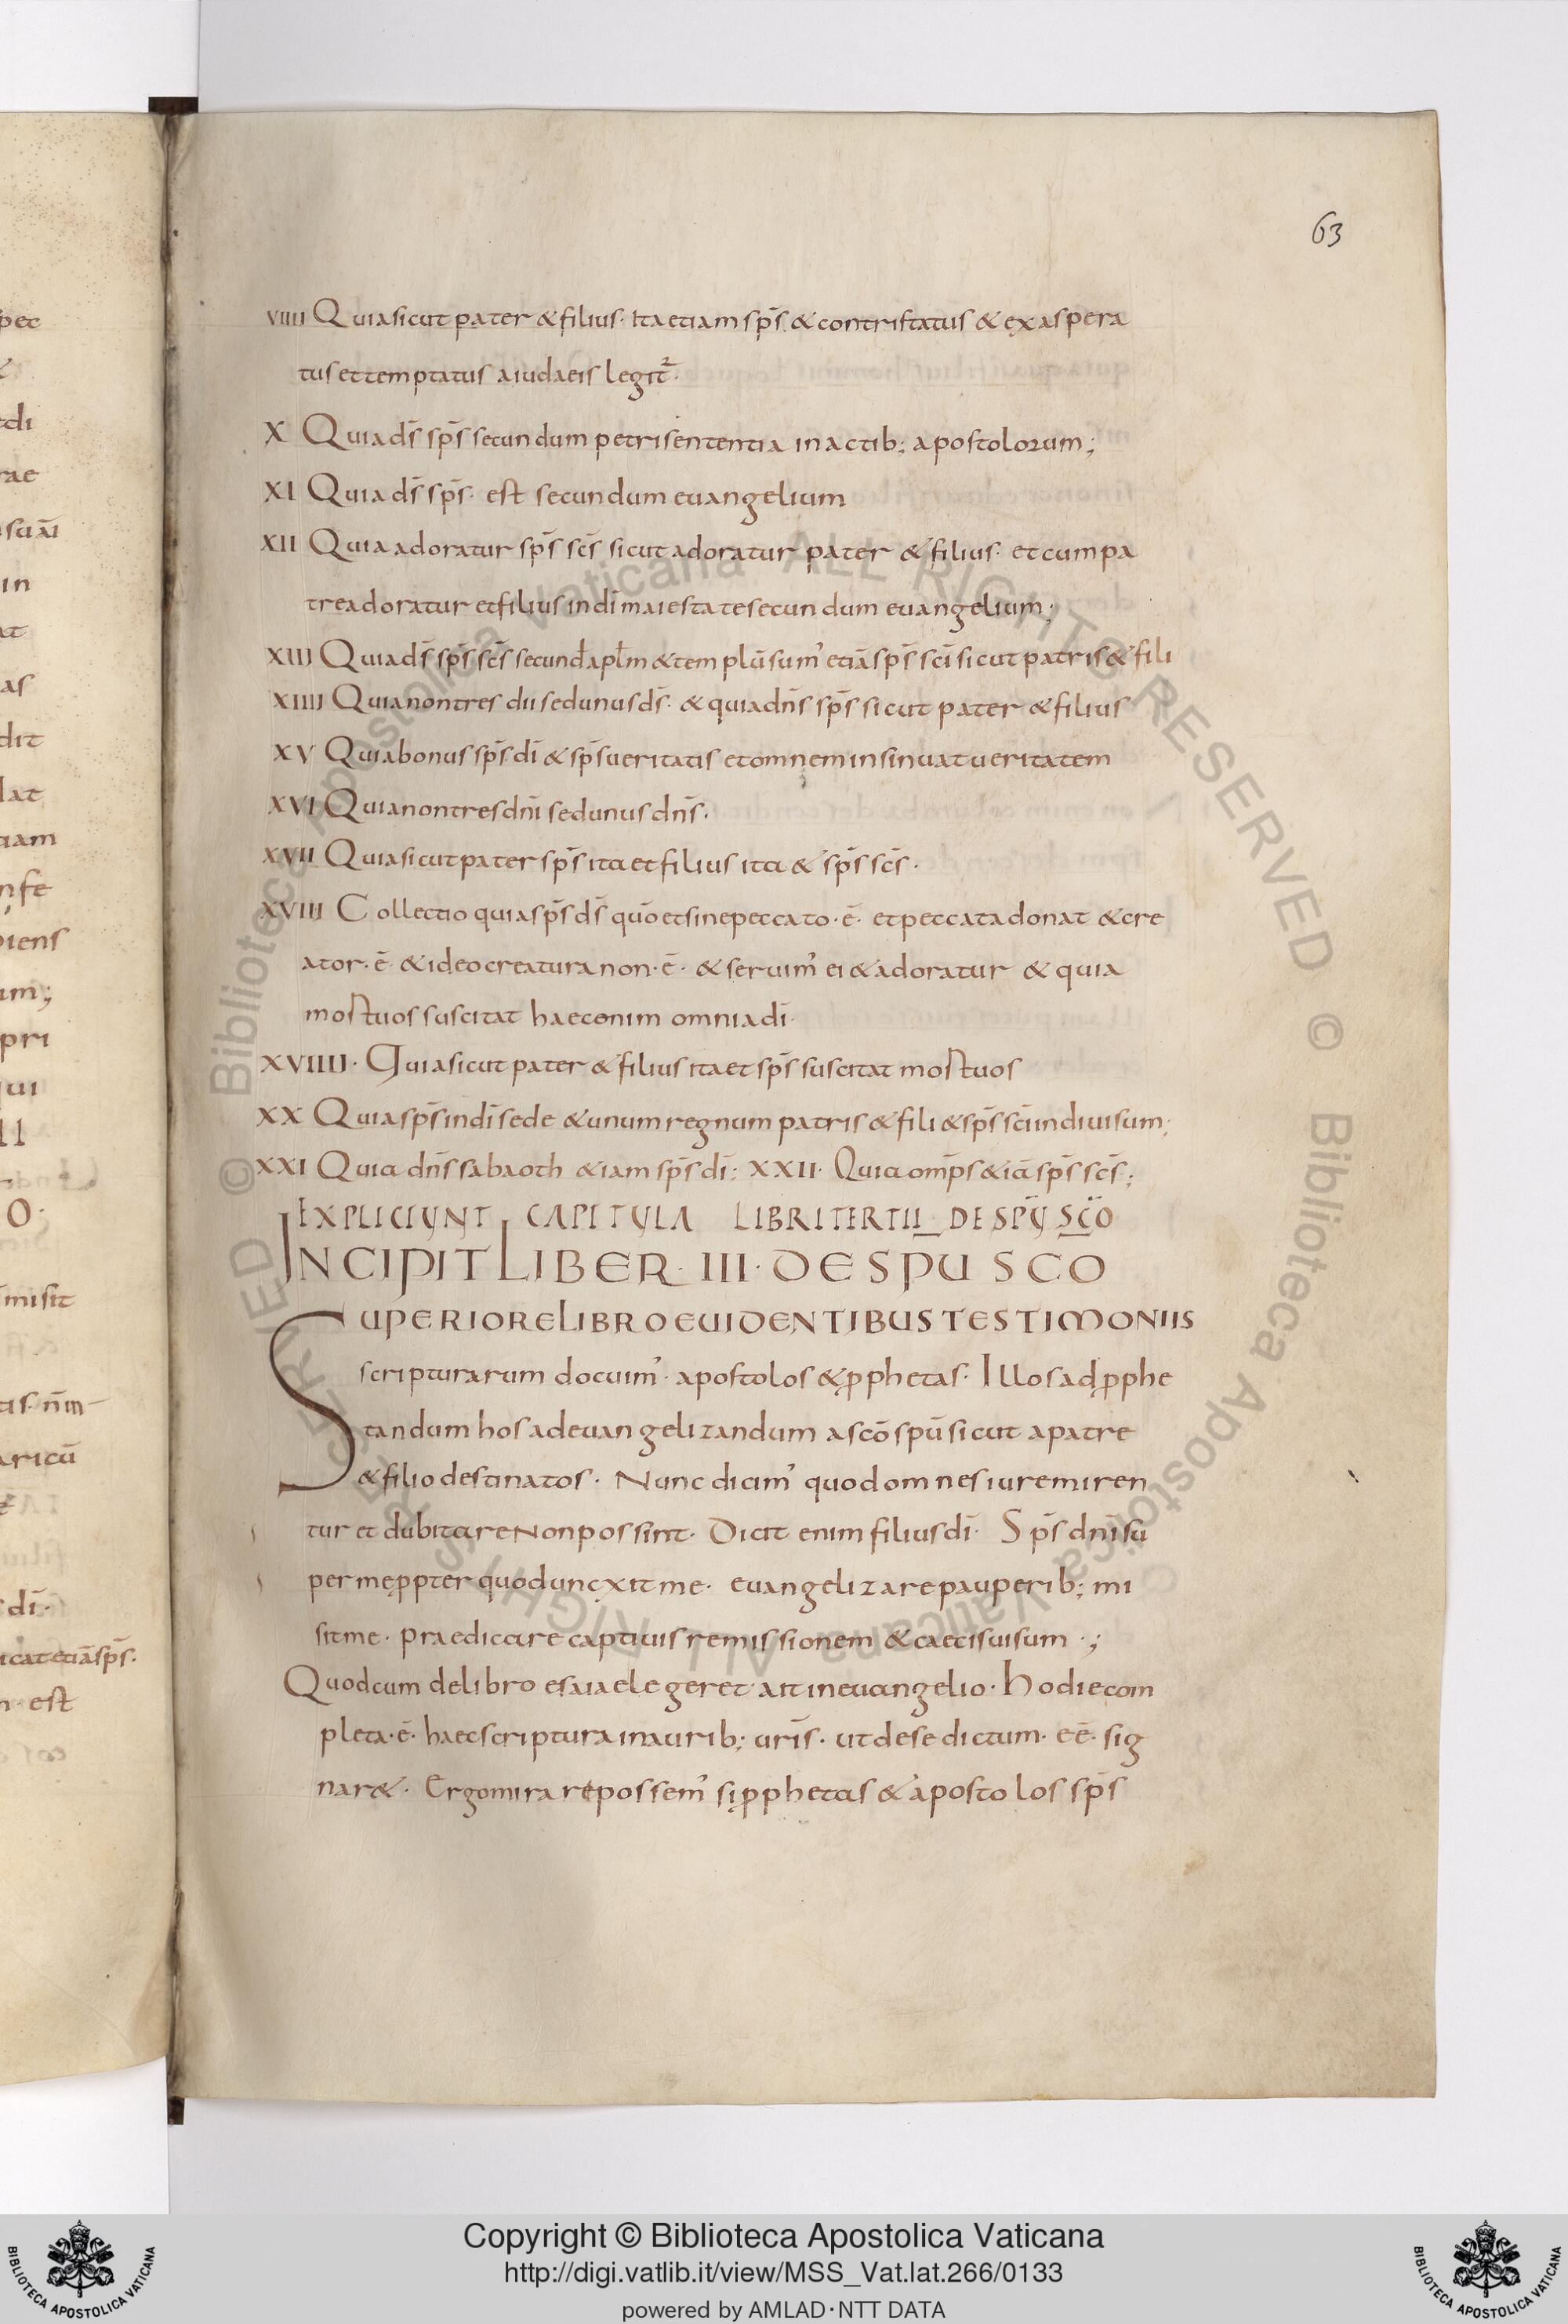 63
VIIII Quia sicut pater & filius · Ita etiam sp̄s & contristatus & exaspera
tus et temptatus a iudaeis legit̄ ·
X Quia ds̄ sp̄s secundum petri sententia in actib; apostolorum;
XI Quia ds̄ sp̄s · est secundum euangelium
XII Quia adoratur sp̄s sc̄s sicut adoratur pater & filius · et cum pa
tre adoratur et filius in dī maiestate secundum euangelium;
XIII Quia ds̄ sp̄s sc̄s secund̄ apl̄m & templū sum' etiā sp̄s sc̄i sicut patris & fili
XIIII Quia non tres dii sed unus ds̄ · & quia dn̄s sp̄s sicut pater & filius
XV Quia bonus sp̄s dī & sp̄s ueritatis et omnem insinuat ueritatem
XVI Quia non tres dn̄i sed unus dn̄s ·
XVII Quia sicut pater sp̄s ita et filius ita & sp̄s sc̄s ·
XVIII Collectio quia sp̄s ds̄ quō et sine peccato · ē · et peccata donat & cre
ator · ē · & ideo creatura non · ē · & seruim' ei & adoratur & quia
mortuos suscitat haec enim omnia dī ·
XVIIII · Quia sicut pater & filius ita et sp̄s suscitat mortuos
XX Quia sp̄s in dī sede & unum regnum patris & fili & sp̄s sc̄i indiuisum;
XXI Quia dn̄s sabaoth & iam sp̄s dī; XXII · Quia om̄ps & iā sp̄s sc̄s;
EXPLICIUNT CAPITULA LIBRI TERTII DE SPŪ SC̄O
INCIPIT LIBER · III · DE SPU SCO
SUPERIORE LIBRO EUIDENTIBUS TESTIMONIIS
scripturarum docuim' · apostolos & prophetas · Illos ad prophe
tandum hos ad euangelizandum a scō spū sicut a patre
& filio destinatos · Nunc dicim' quod omnes iure miren
tur et dubitare non possint · Dicit enim filius dī · Sp̄s dn̄i su
per me propter quod unxit me · euangelizare pauperib; mi
sit me · praedicare captiuis remissionem & caecis uisum · ;
Quod cum de libro esaiae legeret · ait in euangelio · Hodie com
pleta · ē · haec scriptura in aurib; ur̄is · ut de se dictum · eē · sig
nar& · Ergo mirare possem' si prophetas & apostolos sp̄s
Copyright © Biblioteca Apostolica Vaticana
http://digi.vatlib.it/view/MSS_Vat.lat.266/0133
powered by AMLAD·NTT DATA
BIBLIOTECA APOSTOLICA VATICANA
BIBLIOTECA APOSTOLICA VATICANA